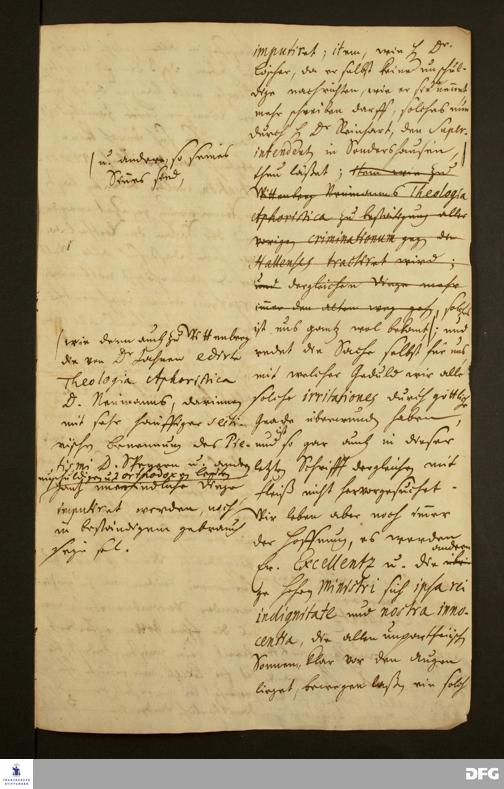 imputiret; item, wie H. Dr.
Löscher, da er selbst keine unschul-
dige nachrichten, wie er sie nennet
mehr schreiben darff, solches nun
durch H. Dr. Reinhart, den Supr.
intendent in Sondershausen,
thun lässet; item wie zu
Wittenberg Neumanns Theologia
Aphoristica zu bestätigung aller
vorigen criminationum gegen die
Hallenses tractiret wird;
und dergleichen Dinge mehr
immer den alten weg geht, solches
ist uns gantz wol bekant; und
redet die Sache selbst für uns
mit welcher Geduld wir alle
solche irritationes durch göttliche
Gnade überwunden haben,
und ist so gar auch in dieser
letzten Schrifft dergleichen mit
fleiß nicht hervorgesuchet.
Wir leben aber noch immer
der Hoffnung, es werden
Ew. Excellentz u. die andern
hohen Ministri sich ipsa rei
indignitate und nostra inno-
centia, die allen unpartheiisch
Sonnen klar vor den Augen
lieget, bewegen laßen, ein solch
u. andere, so seines
Sinnes sind,
wie denn auch zu Wittenberg
die von Dr. edirte
Theologia Aphoristica
D. Neumanns, darinnen
mit sehr häuffiger
Benennung des Pie-
tismi D. Spenern u. andern
unschuldigen ut orthodoxen
gantz Dinge
imputiret werden, noch
in beständigem gebrauch
seyn sol.
FRANCKESCHE
STIFTUNGEN
DFG